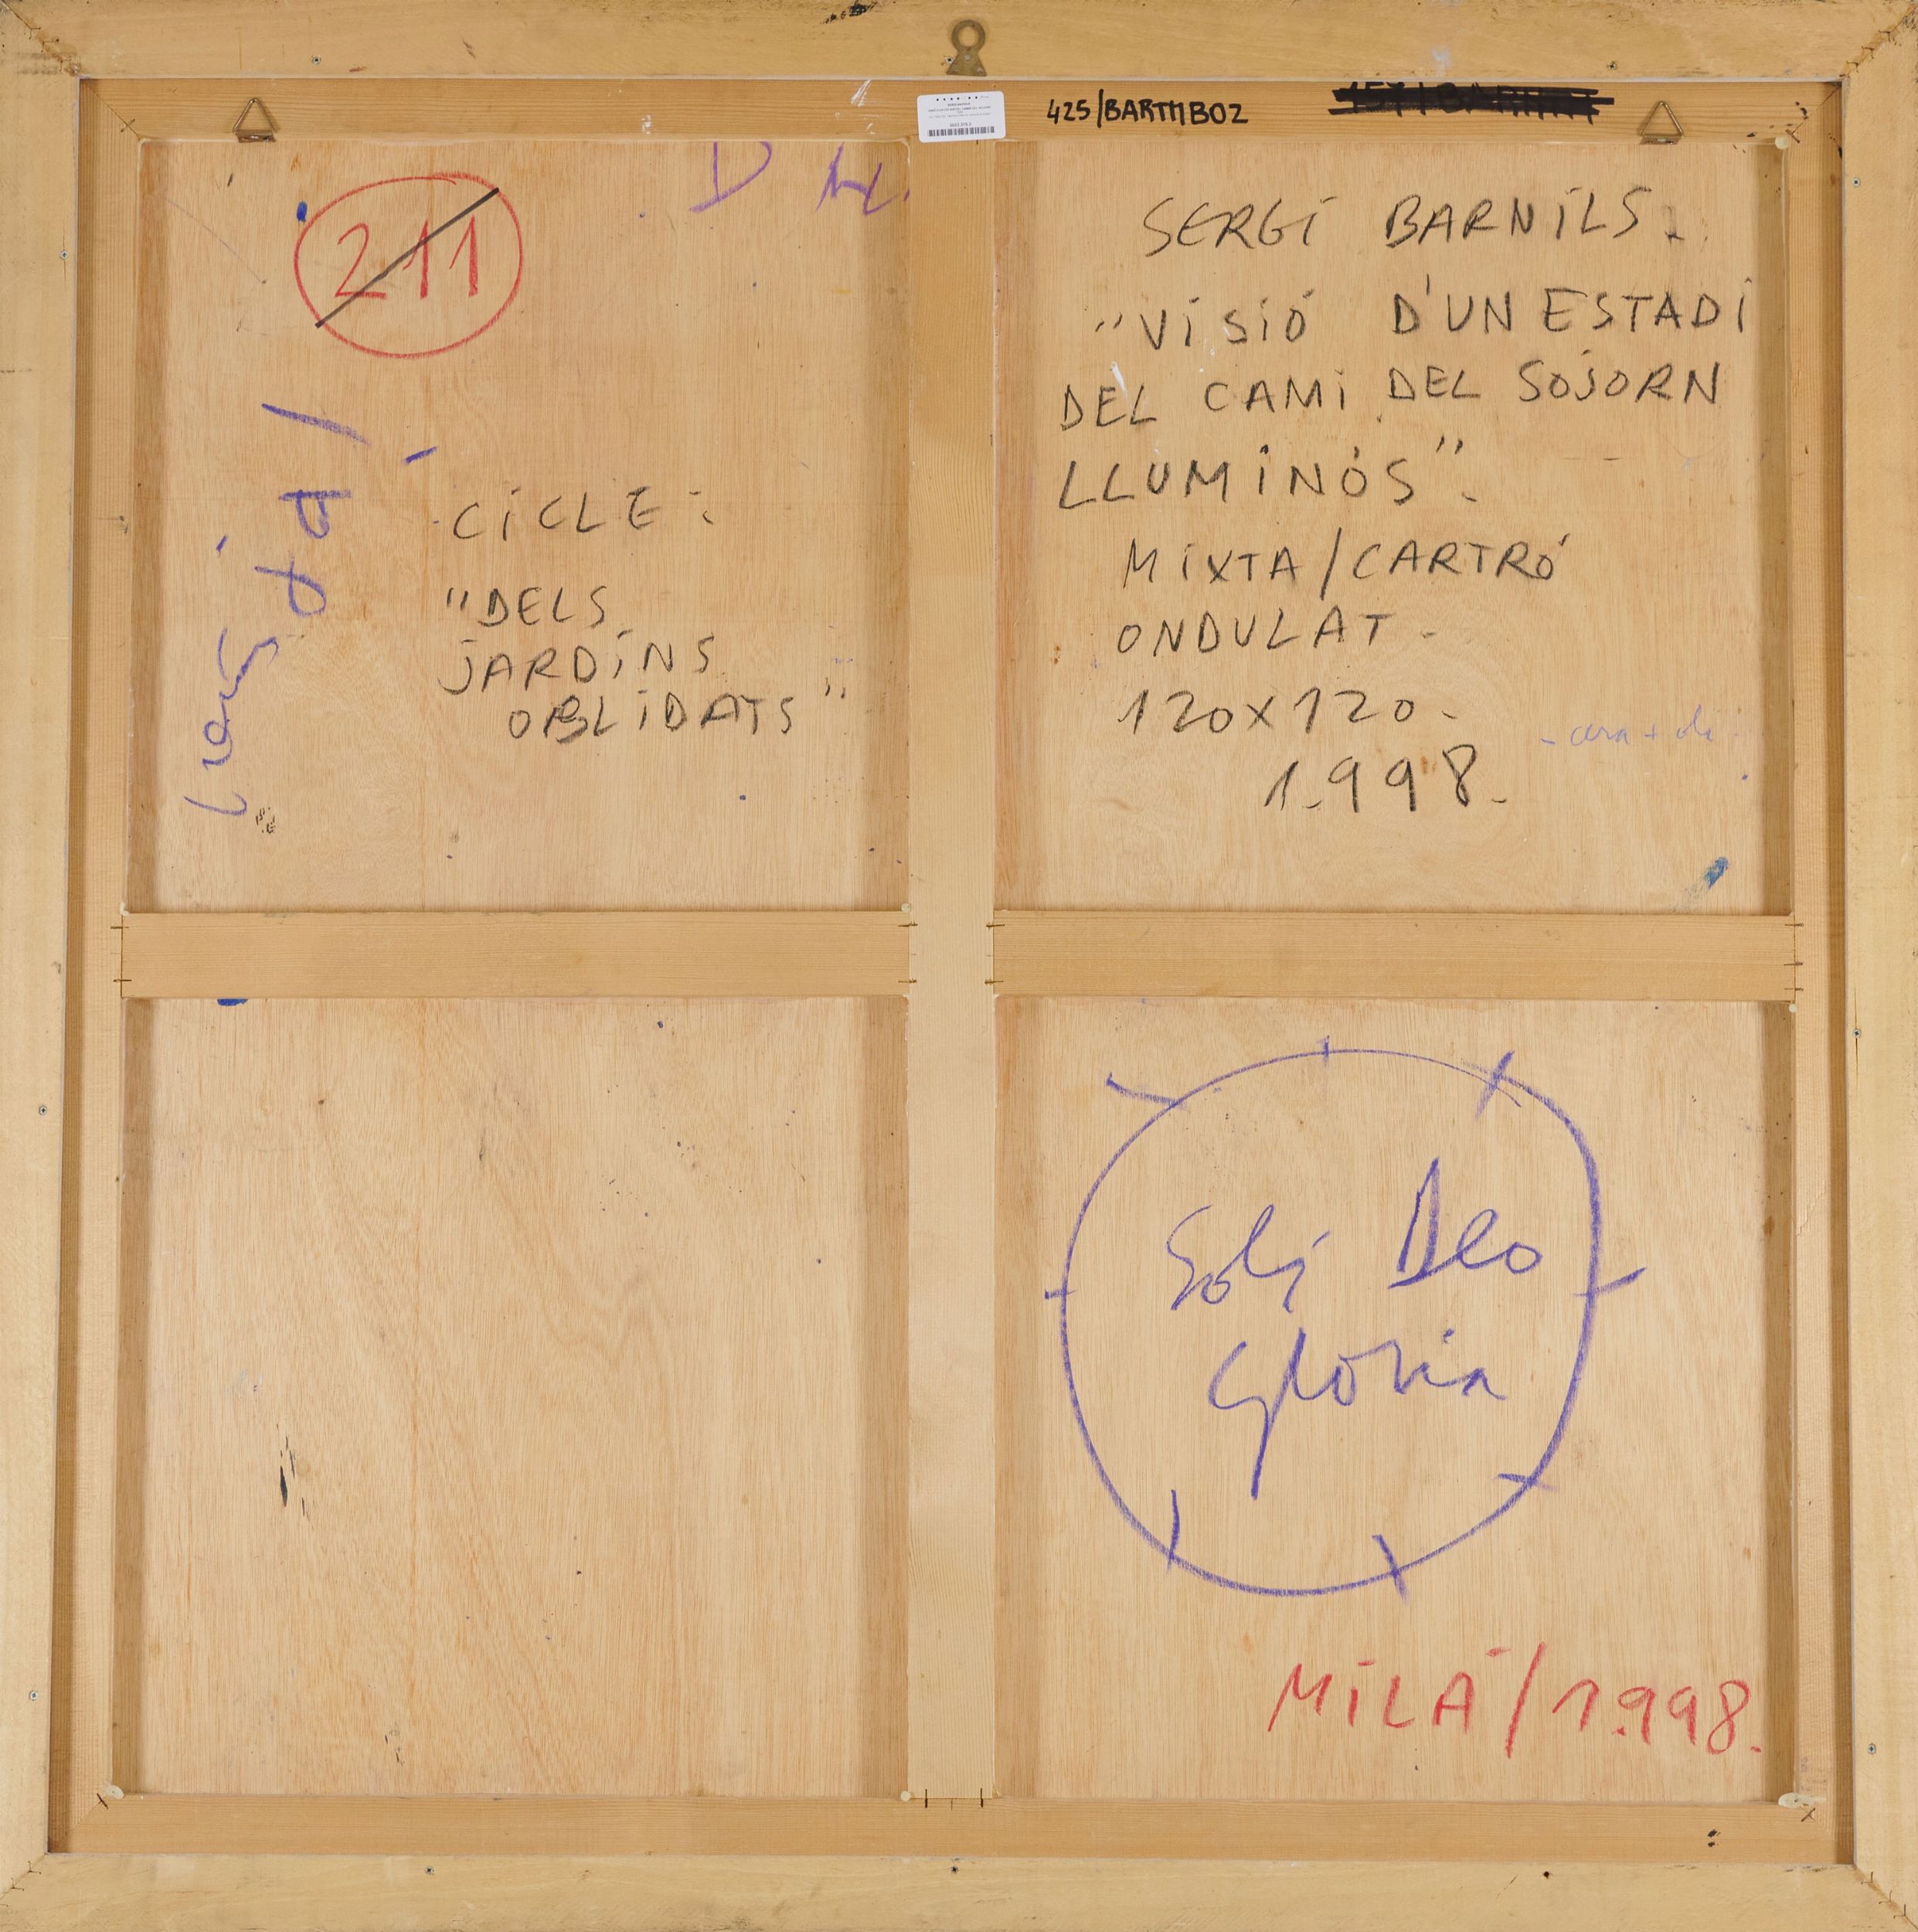 425/BARTMB02
211
CICLE:
"DELS
JARDINS
OBLIDATS"
SERGI BARNILS.
"VISIÓ D'UN ESTADI
DEL CAMI DEL SOJORN
LLUMINÓS".
MIXTA/CARTRÓ
ONDULAT.
120X120.
1.998.
- cera + oli
Soli Deo
Gloria
MILÀ/1.998.